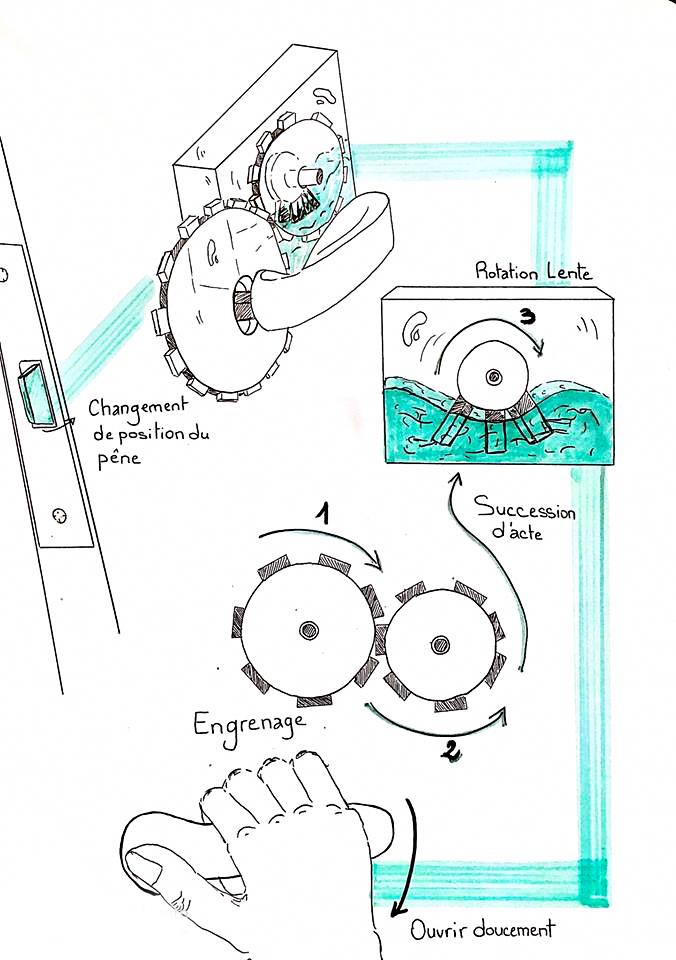 Rotation Lente
3
Changement
de position du
pêne
Succession
d'acte
1
Engrenage
2
Ouvrir doucement